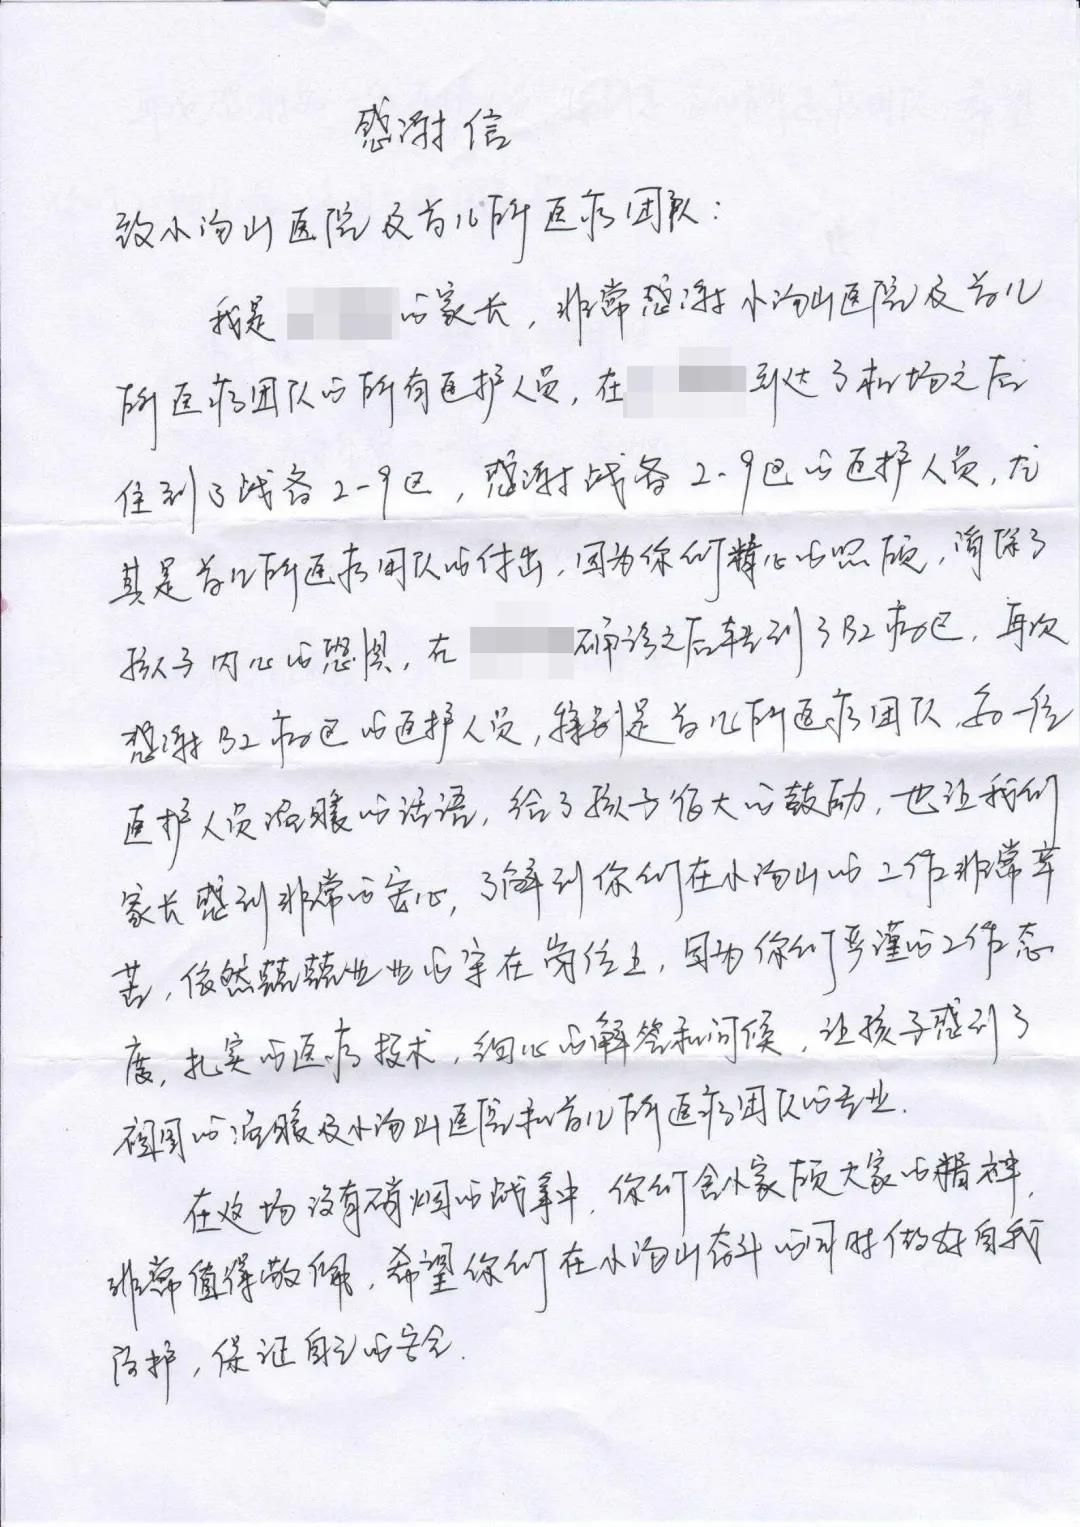 感谢信
致小汤山医院及首儿所医疗团队：
我是的家长，非常感谢小汤山医院及首儿
所医疗团队的所有医护人员，在到达了机场之后
住到了战备2-9区，感谢战备2-9区的医护人员，尤
其是首儿所医疗团队的付出，因为你们精心的照顾，消除了
孩子内心的恐惧，在确诊之后转到了B2病区，再次
感谢B2病区的医护人员，特别是首儿所医疗团队，每一位
医护人员温暖的话语，给了孩子很大的鼓励，也让我们
家长感到非常的安心，了解到你们在小汤山的工作非常辛
苦，依然兢兢业业的守在岗位上，因为你们严谨的工作态
度，扎实的医疗技术，细心的解答和问候，让孩子感到了
祖国的温暖及小汤山医院和首儿所医疗团队的专业.
在这场没有硝烟的战争中，你们舍小家顾大家的精神，
非常值得敬佩，希望你们在小汤山奋斗的同时做好自我
防护，保证自己的安全.